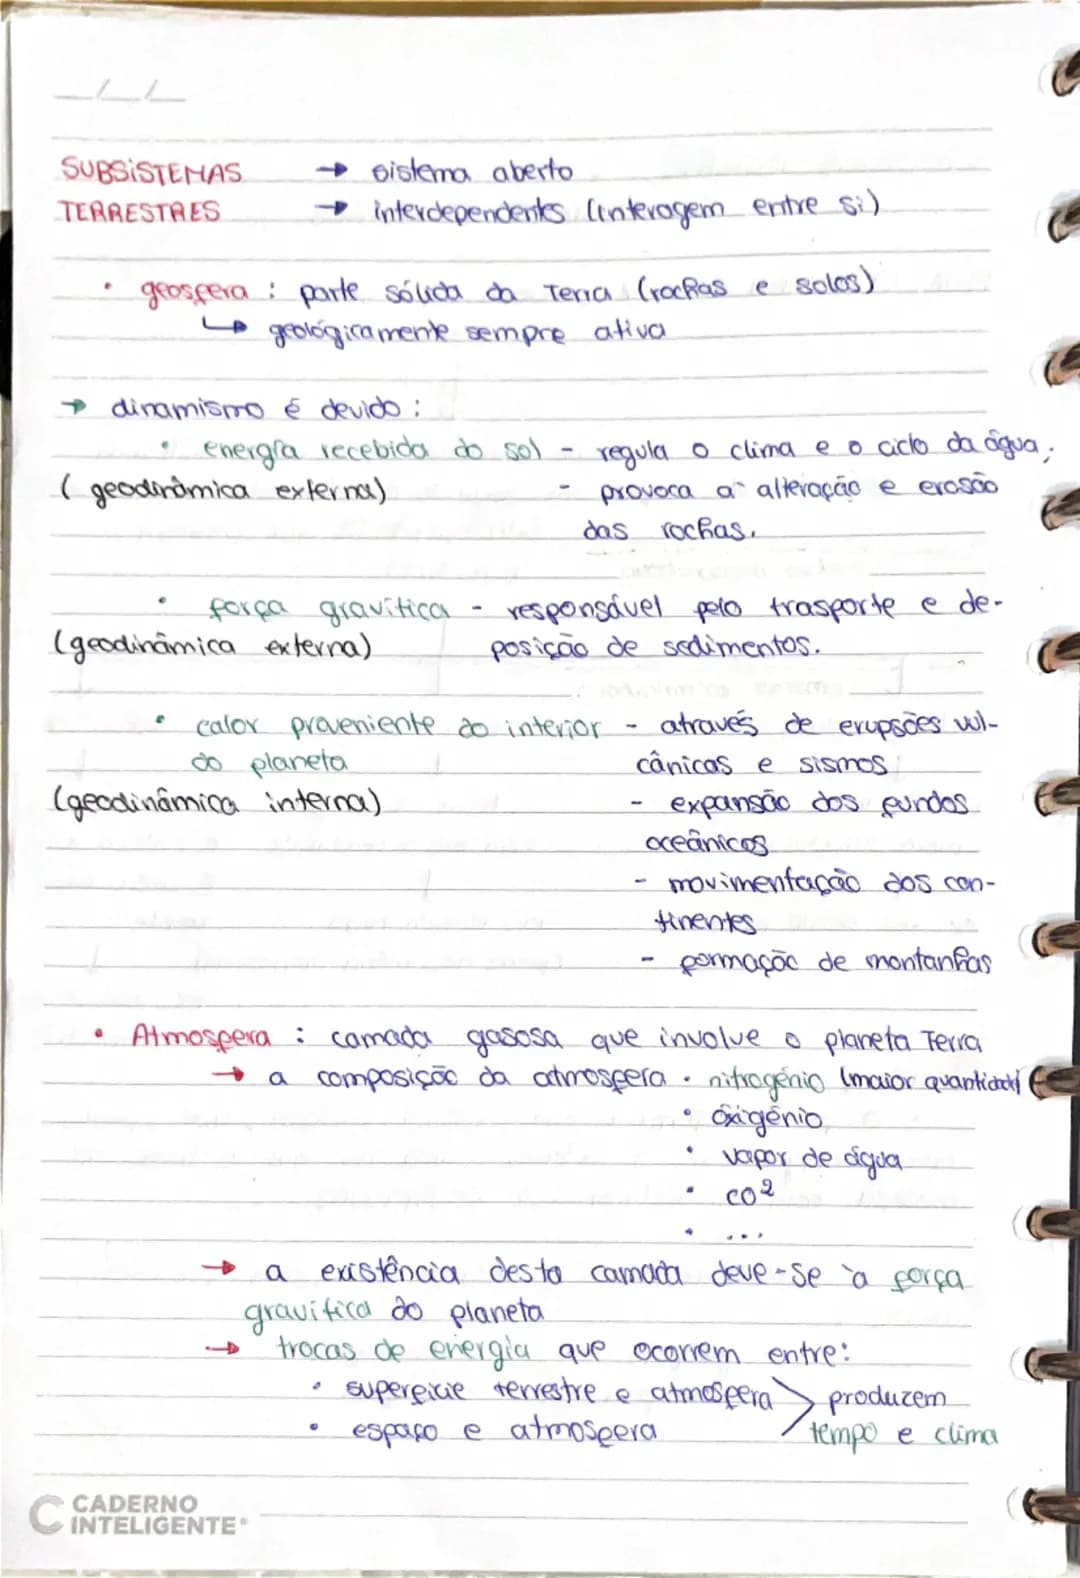 SUBSiSTEMAS → sistema aberto
TERRESTRES → interdependentes (interagem entre si)
• geosfera : parte sólida da Terra (rochas e solos)
↳ geológicamente sempre ativa
→ dinamismo é devido :
• energia recebida do sol - regula o clima e o ciclo da água;
(geodinâmica externa) - provoca a alteração e erosão
das rochas.
• força gravítica - responsável pelo trasporte e de-
(geodinâmica externa) posição de sedimentos.
• calor proveniente do interior - através de erupsões vul-
do planeta cânicas e sismos
(geodinâmica interna) - expansão dos fundos
oceânicos
- movimentação dos con-
tinentes
- formação de montanhas
• Atmosfera : camada gasosa que involve o planeta Terra
→ a composição da atmosfera • nitrogénio (maior quantidade)
• óxigénio
• vapor de água
• CO²
• ...
→ a existência desta camada deve-se à força
gravítica do planeta
→ trocas de energia que ocorrem entre:
• superfície terrestre e atmosfera > produzem
• espaço e atmosfera tempo e clima
CADERNO
INTELIGENTE®